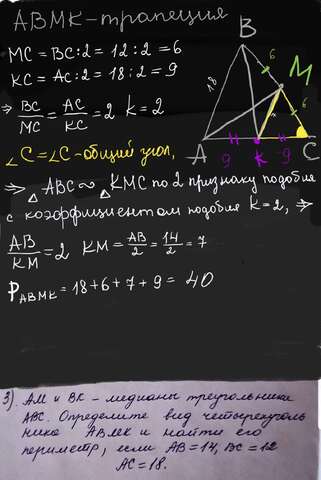 ABMK-трапеция
MC = BC:2 = 12:2 = 6
KC = AC:2 = 18:2 = 9
⇒ BC/MC = AC/KC = 2 k = 2
∠C=∠C-общий угол,
⇒ △ABC ∾ △KMC по 2 признаку подобия
с коэффициентом подобия k=2, ⇒
AB/KM = 2 KM = AB/2 = 14/2 = 7
P ABMK = 18+6+7+9 = 40
B
6
M
18
6
A
K
C
9
9
3). АМ и ВК - медианы треугольника
АВС. Определите вид четырехуголь
ника АВМК и найти его
периметр, если АВ=14, ВС=12
АС=18.